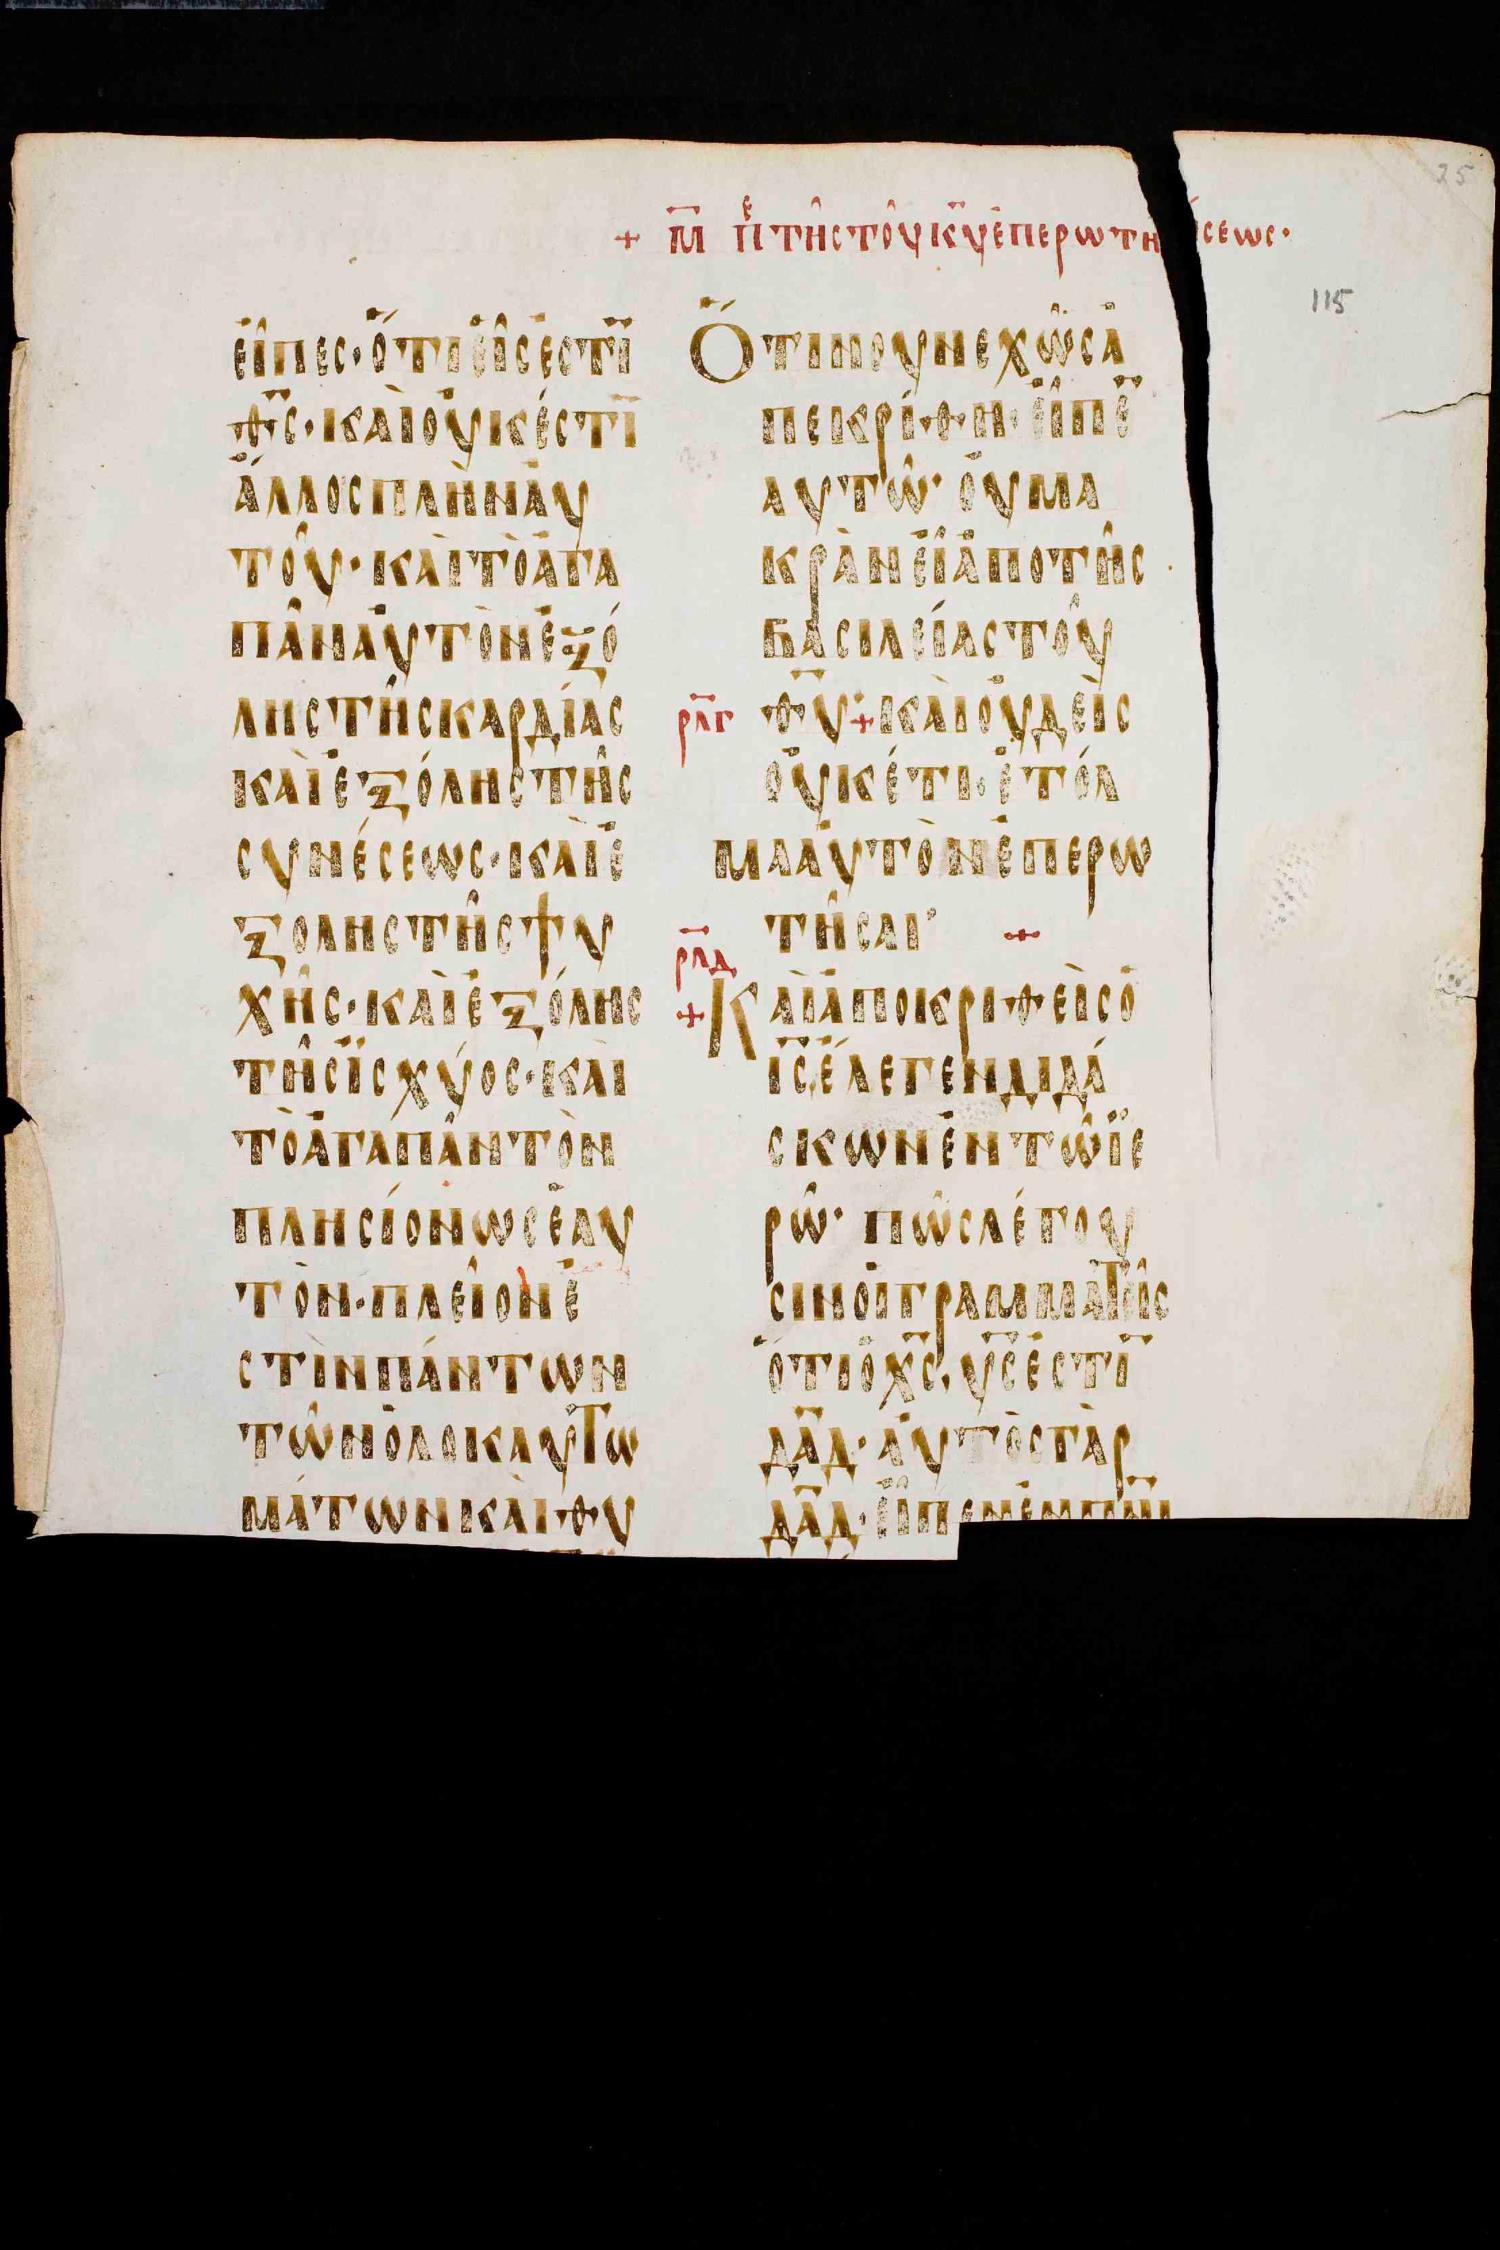 25
+ Μ̅ Πε τῆς τοῦ κ̅υ̅ ἐπερωτήσεως·
115
εἶπες· ὅτι εἷς ἐστῒ
θ̅ς̅· καὶ οὐκ ἔστῒ
ἄλλος πλὴν αὐ
τοῦ· καὶ τὸ ἀγα
πᾶν αὐτὸν ἐξ ὅ
λης τῆς καρδίας
καὶ ἐξ ὅλης τῆς
συνέσεως· καὶ ἐ
ξ ολης τῆς ψυ
χῆς· καὶ ἐξ ὅλης
τῆς ἰσχύος· καὶ
τὸ ἀγαπᾶν τὸν
πλησίον ως ἑαυ
τὸν· πλεῖον ἐ
στὶν πάντων
τῶν ὁλοκαυτω
μάτων καὶ θυ
Ὅτι νουνεχῶς ἀ
πεκρίθη· εἶπε̅
αυτῶ· οὐ μα
κρὰν εἶ ἀπο τῆς
βασιλείας τοῦ
ρ̅λ̅γ̅ θ̅υ̅· + καὶ οὐδεὶς
οὐκέτι· ἐτόλ
μα αὐτὸν ἐπερω
τῆσαι· +
ρ̅λ̅δ̅
+ Καὶ ἀποκριθεὶς ὁ
ι̅ς̅ ἔλεγεν διδά
σκων ἐν τῶ ἱε
ρῶ· πῶς λέγου
σιν οἱ γραμματεῖς
ὅτι ὁ χ̅ς̅, υ̅ς̅ ἐστῒ
δ̅α̅δ̅· αὐτὸς γὰρ
δ̅α̅δ̅· εἶπεν ἐν π̅ν̅ι̅